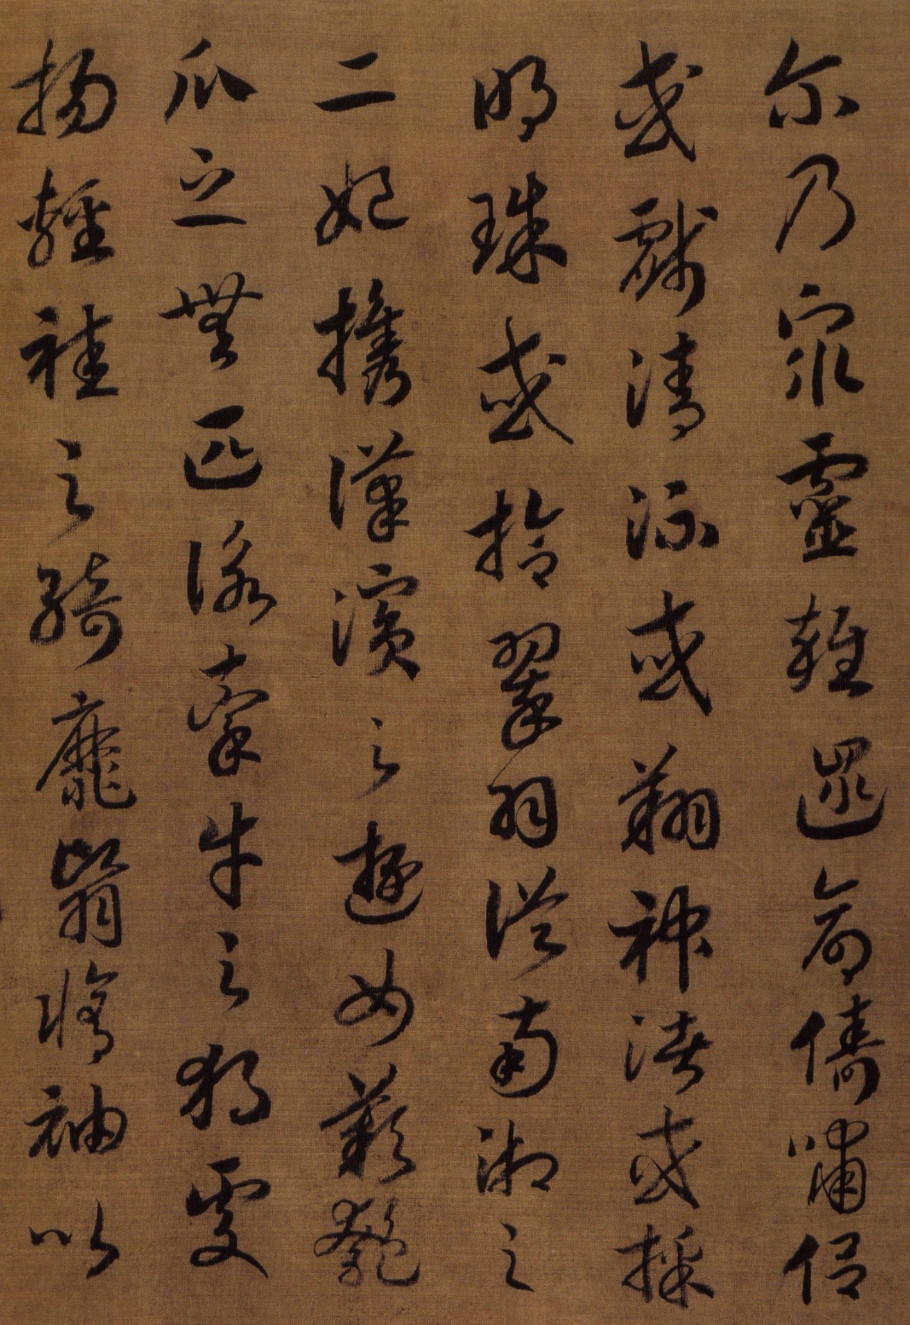 尓乃衆靈雜遝命儔嘯侶
或戲清流或翔神渚或採
明珠或拾翠羽從南湘之
二妃攜漢濱之遊女歎匏
瓜之無匹詠牽牛之獨處
揚輕袿之綺靡翳脩袖以